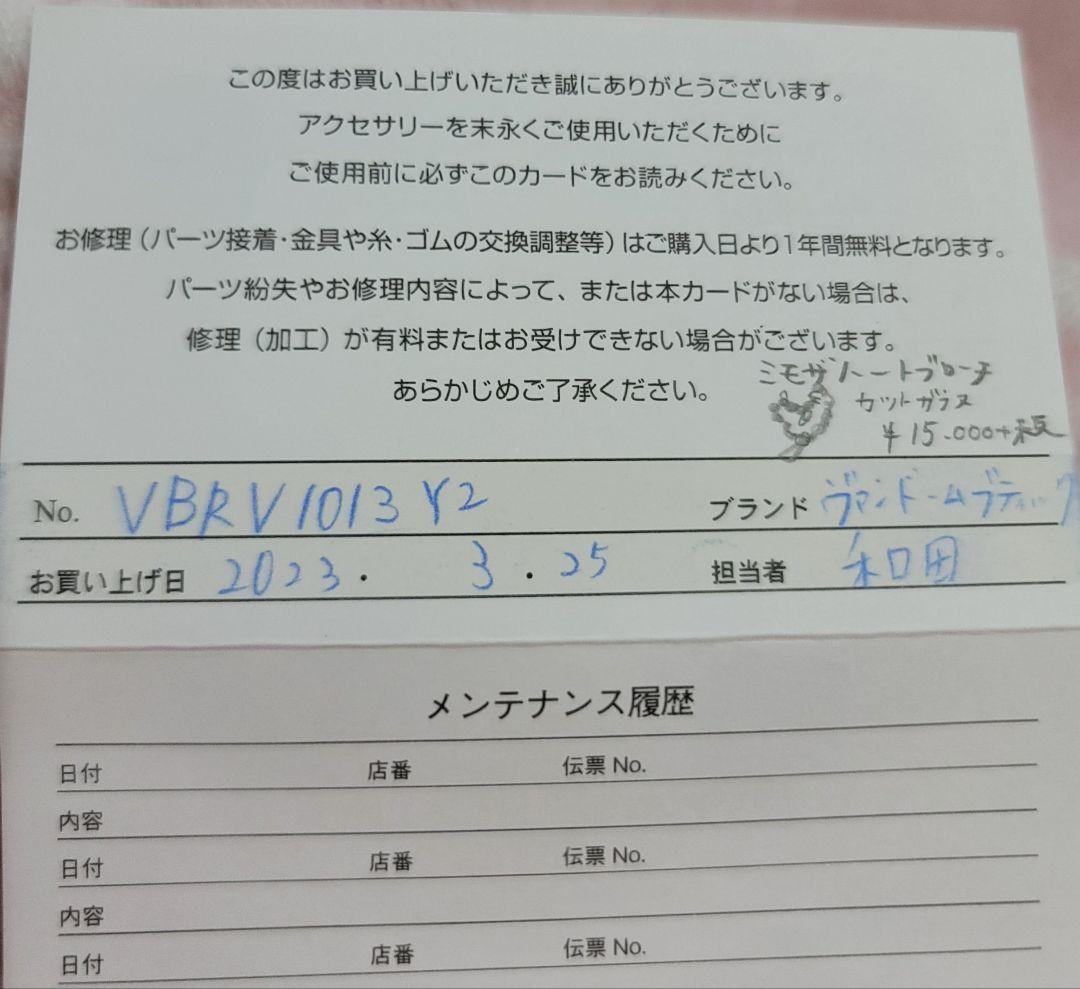 この度はお買い上げいただき誠にありがとうございます。
アクセサリーを末永くご使用いただくために
ご使用前に必ずこのカードをお読みください。
お修理（パーツ接着・金具や糸・ゴムの交換調整等）はご購入日より1年間無料となります。
パーツ紛失やお修理内容によって、または本カードがない場合は、
修理（加工）が有料またはお受けできない場合がございます。
あらかじめご了承ください。
ミモザハートブローチ
カットガラス
¥15.000+税
No. VBRV1013Y2 ブランド ヴァンドームブティック
お買い上げ日 2023・3・25 担当者 和田
メンテナンス履歴
日付 店番 伝票 No.
内容
日付 店番 伝票 No.
内容
日付 店番 伝票 No.